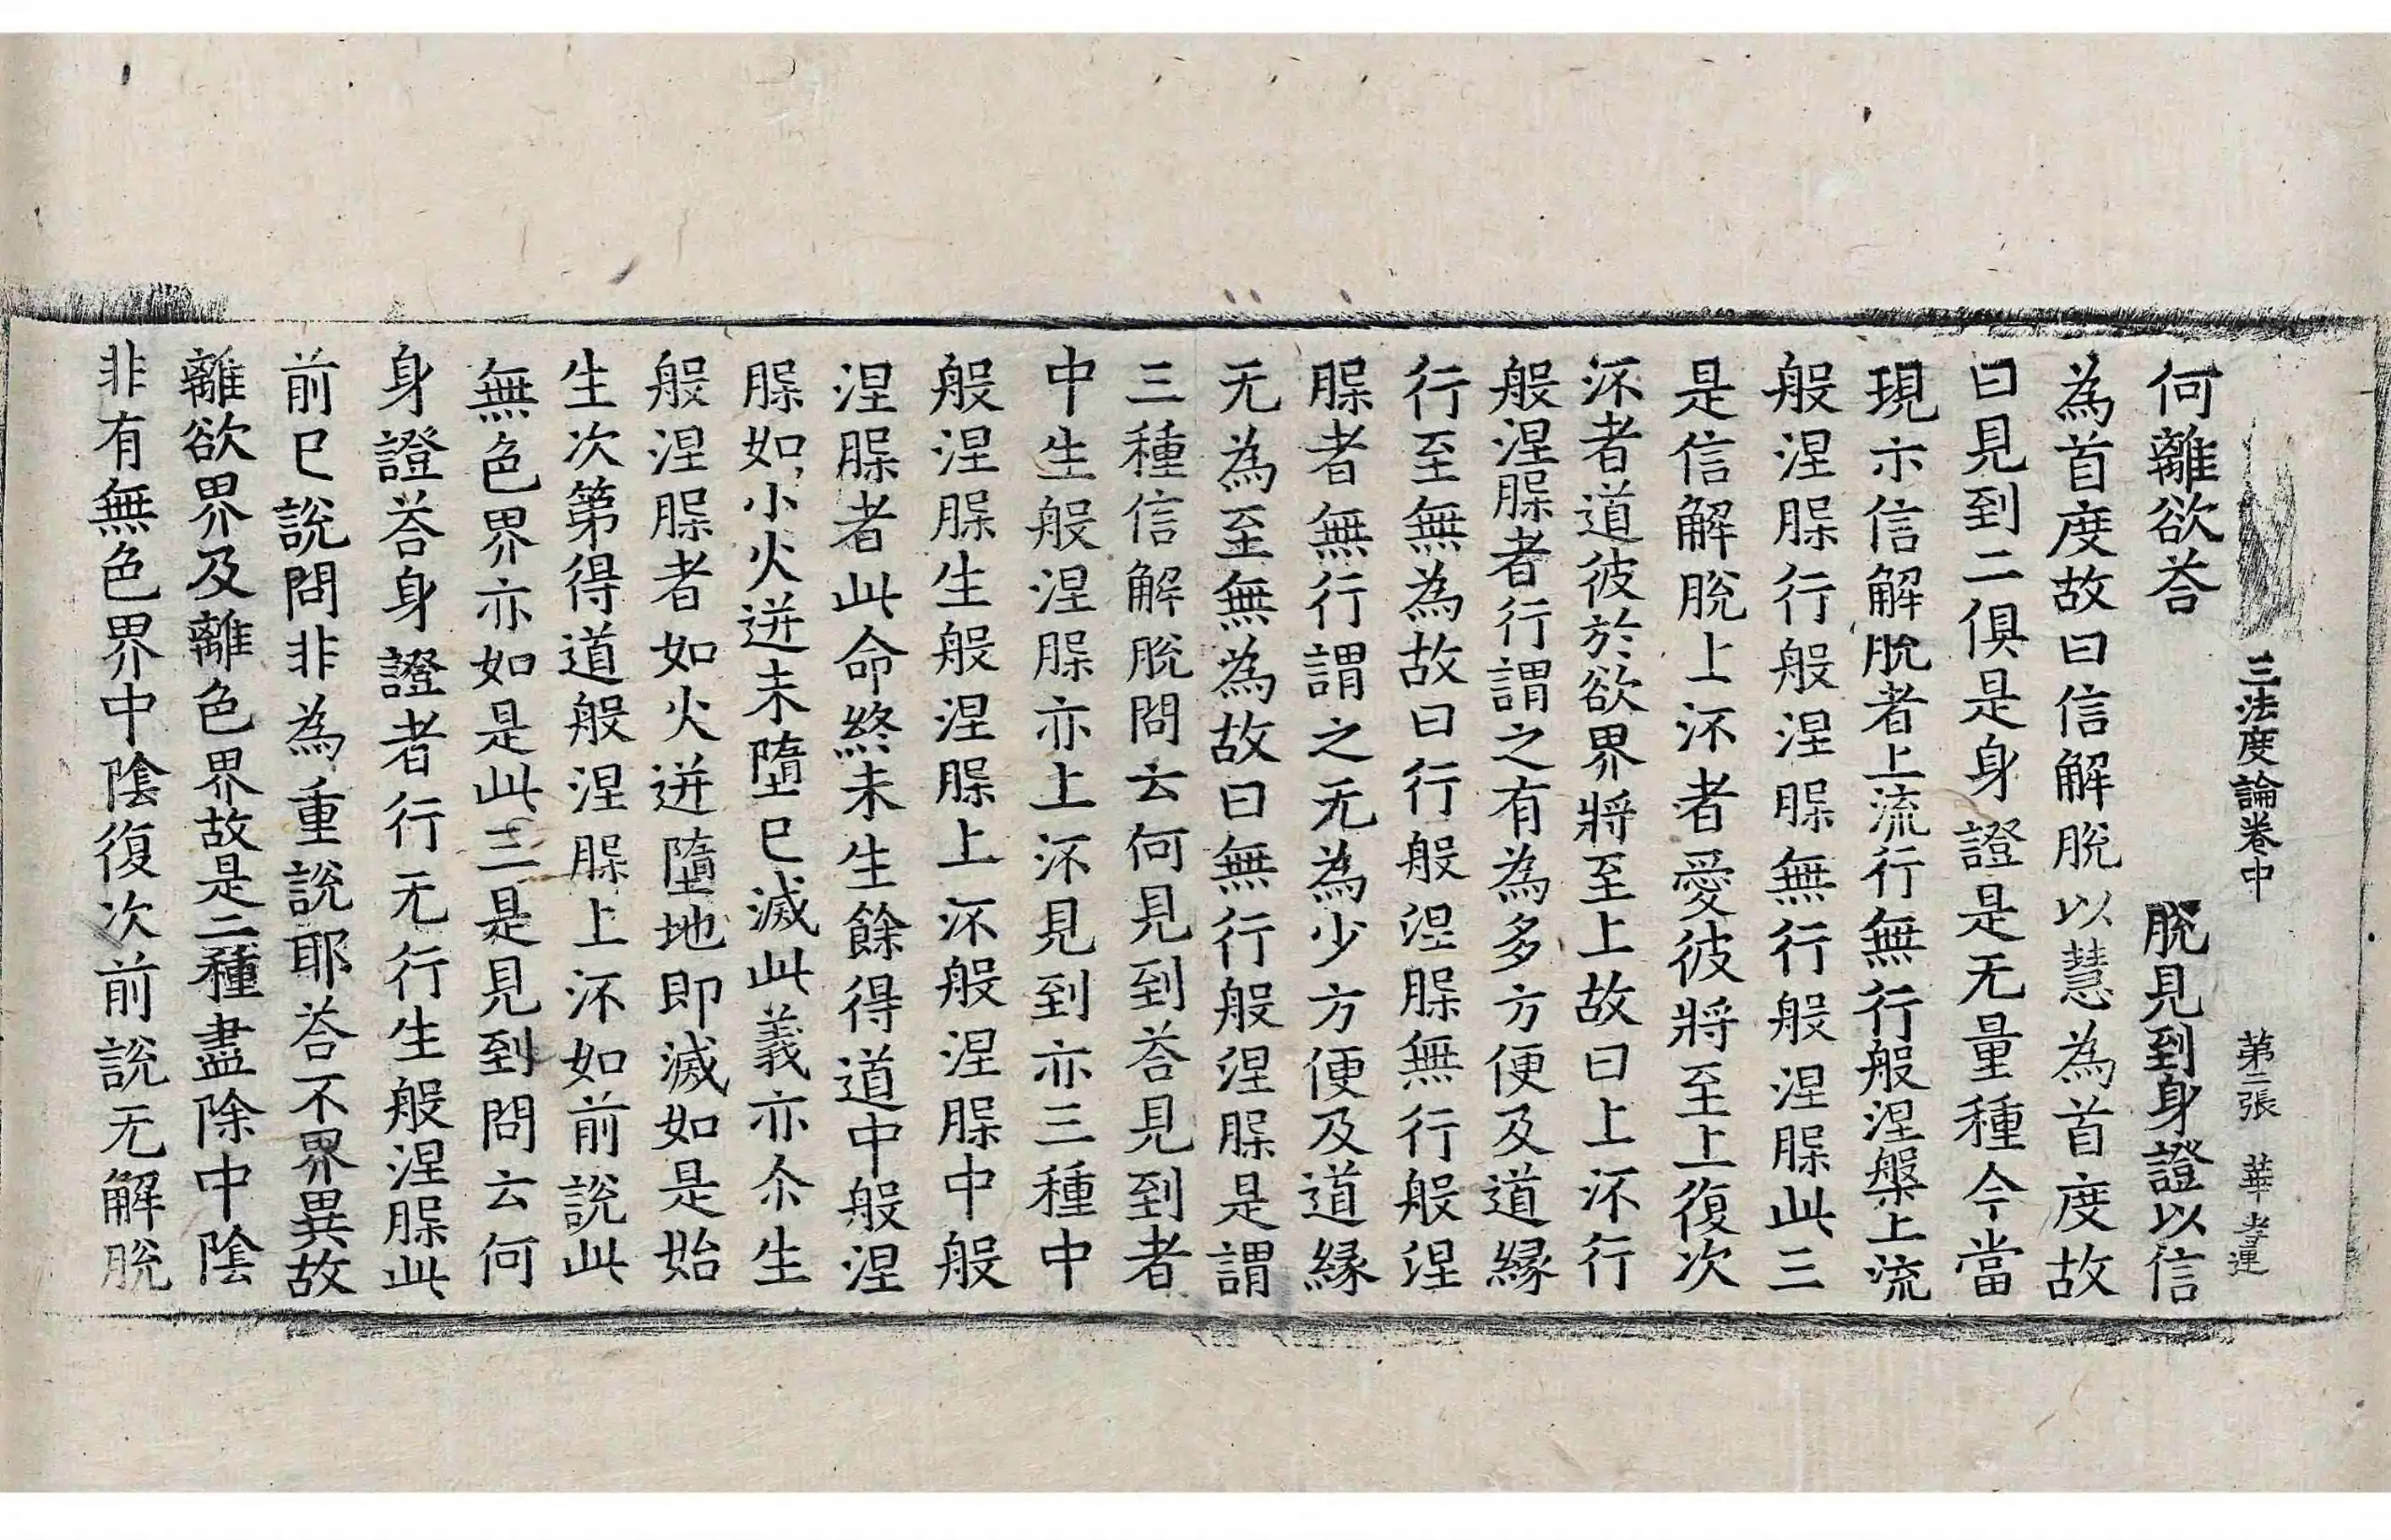 三法度論卷中 第二張 華 孝連
何離欲荅 脫見到身證以信
為首度故曰信解脫以慧為首度故
曰見到二俱是身證是无量種今當
現示信解脫者上流行無行般涅槃上流
般涅𦝫行般涅𦝫無行般涅𦝫此三
是信解脫上㳅者愛彼將至上復次
㳅者道彼於欲界將至上故曰上㳅行
般涅𦝫者行謂之有為多方便及道緣
行至無為故曰行般涅𦝫無行般涅
𦝫者無行謂之无為少方便及道緣
无為至無為故曰無行般涅𦝫是謂
三種信解脫問云何見到荅見到者
中生般涅𦝫亦上㳅見到亦三種中
般涅𦝫生般涅𦝫上㳅般涅𦝫中般
涅𦝫者此命終未生餘得道中般涅
𦝫如小火迸未墮已滅此義亦尒生
般涅𦝫者如火迸墮地即滅如是始
生次第得道般涅𦝫上㳅如前說此
無色界亦如是此三是見到問云何
身證荅身證者行无行生般涅𦝫此
前已說問非為重說耶荅不界異故
離欲界及離色界故是二種盡除中陰
非有無色界中陰復次前說无解脫